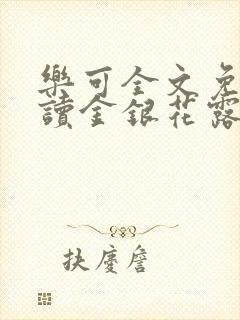 樂可全文免
讀金銀花露
扶慶詹